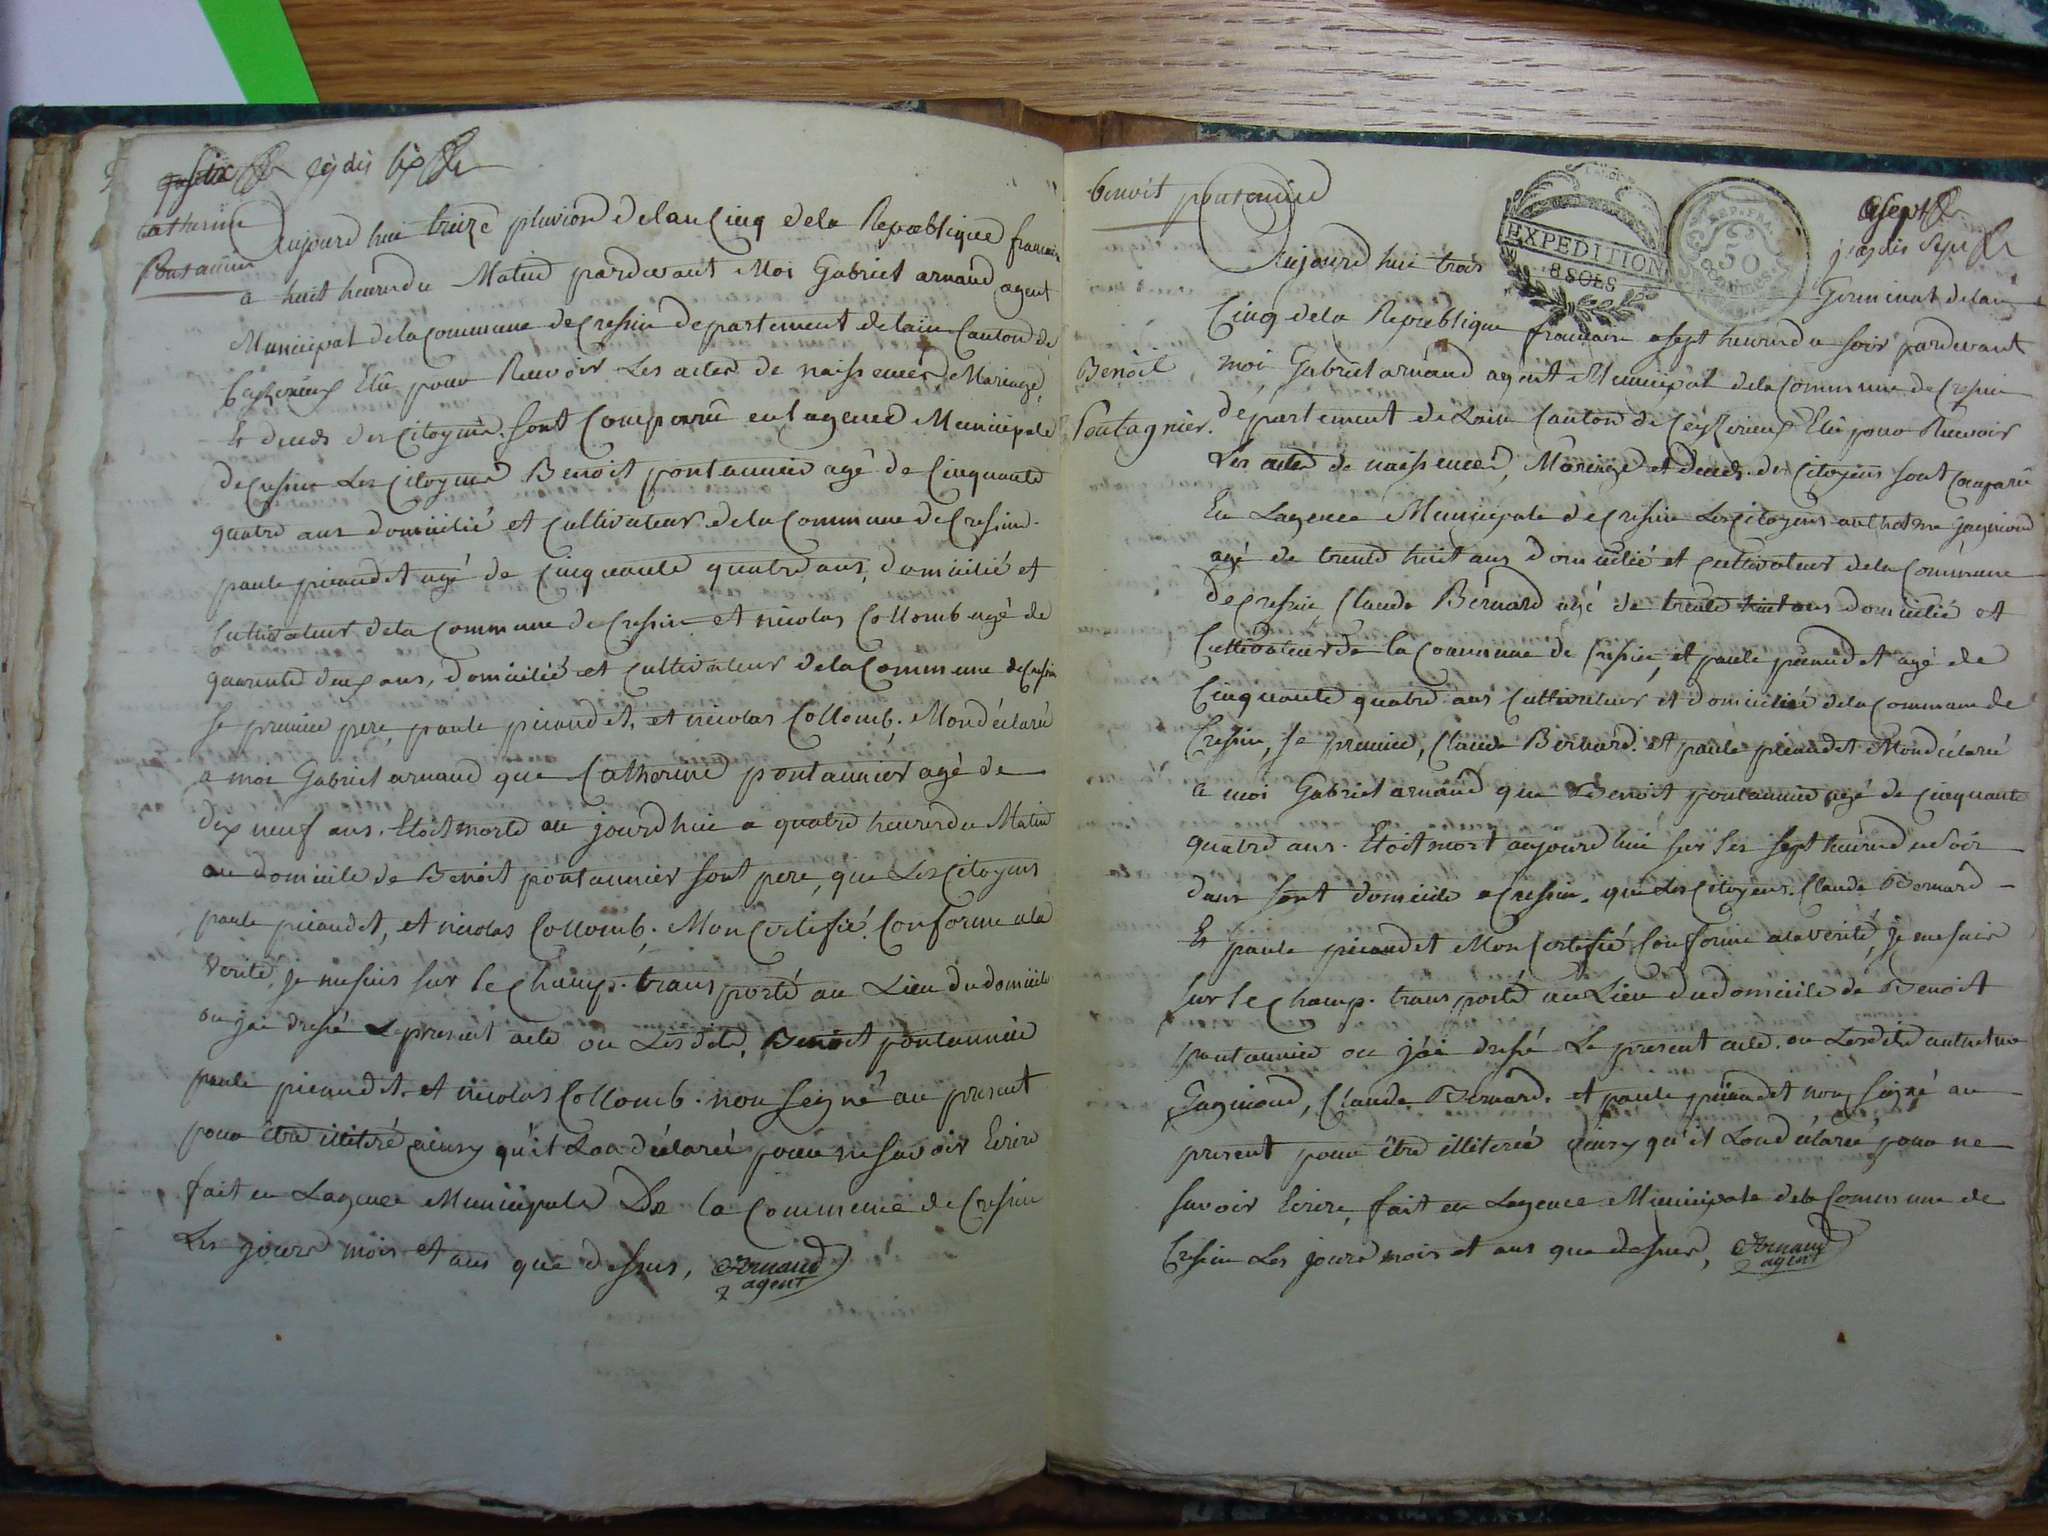 six dix six
Catherine
pontannier
aujourd hui treize pluviose de lan Cinq de la Republique francaise
a huit heures du Matin pardevant Moi Gabriel arnaud agent
Municipal de la commune de Cressin departement de lain Canton de
Ceyzerieux Elu pour Recevoir Les actes de naissences, Mariages,
Et deces des Citoyens. sont Comparru en lagence Municipale
de Cressin Les Citoyens Benoit pontannier agé de Cinquante
quatre ans domicilié et cultivateur de la Commune de Cressin.
paule picaudet agé de cinquante quatre ans, domicilié et
Cultivateur de la Commune de Cressin et nicolas Collomb agé de
quarente deux ans, domicilié et cultivateur de la Commune de Cressin
Le premier pere, paule picaudet, et nicolas Collomb. Mon déclaré
a moi Gabriel arnaud que Catherine pontannier agé de
dix neuf ans. Etoit morte au jourdhui a quatre heures du Matin
au domicile de Benoit pontannier sont pere, que Les Citoyens
paule picaudet, et nicolas Collomb. Mon Certifié Conforme a la
verité, je me suis sur le Champ. transporté au Lieu du domicile
ou jai dressé Le present acte ou Lesdits, Benoit pontannier
paule picaudet. et nicolas Collomb. non seigné au present
pour être illiteré ainsy qu'il Lon déclaré pour ne savoir Ecrire
fait en Lagence Municipale De la Commune de Cressin
Les jours mois et ans que dessus, Arnaud
agent
benoit pontannier
EXPEDITION
8 SOLS
REP. FRA.
50
CENTIMES
sept
dix sept
Aujourd hui trois Germinal de lan
Cinq de la Republique francaise a sept heures du soir pardevant
Benoit
Pontagnier.
moi Gabriel arnaud agent Municipal de la Commune de Cressin
departement de Lain Canton de Ceyzerieux Elu pour Recevoir
Les actes de naissences, Mariages et deces. des Citoyens sont Comparû
En Lagence Municipale de Cressin Les Citoyens anthelme Gagnioud
agé de trente huit ans domicilié et cultivateur de la Commune
de Cressin Claude Bernard agé de trente huit ans domicilié et
Cultivateur de la Commune de Cressin, et paule picaudet agé de
Cinquante quatre ans cultivateur et domicilié de la Commune de
Cressin, Le premier, Claude Bernard. et paule picaudet Mon déclaré
a moi Gabriel arnaud que Benoit pontannier agé de cinquante
quatre ans. Etoit mort aujourd hui sur les sept heures du soir
dans sont domicile a Cressin. que Les Citoyens. Claude Bernard
Et paule picaudet Mon Certifié Conforme a la vérité, Je me suis
sur le Champ. transporté au Lieu du domicile de Benoit
pontannier ou j'ai dressé Le present acte. ou Lesdits anthelme
Gagnioud, Claude Bernard. et paule picaudet non seigné au
present pour être illiteré ainsy qu'il Lon déclaré pour ne
savoir Ecrire, fait en Lagence Municipale de la Commune de
Cressin Les jours mois et ans que dessus, Arnaud
agent